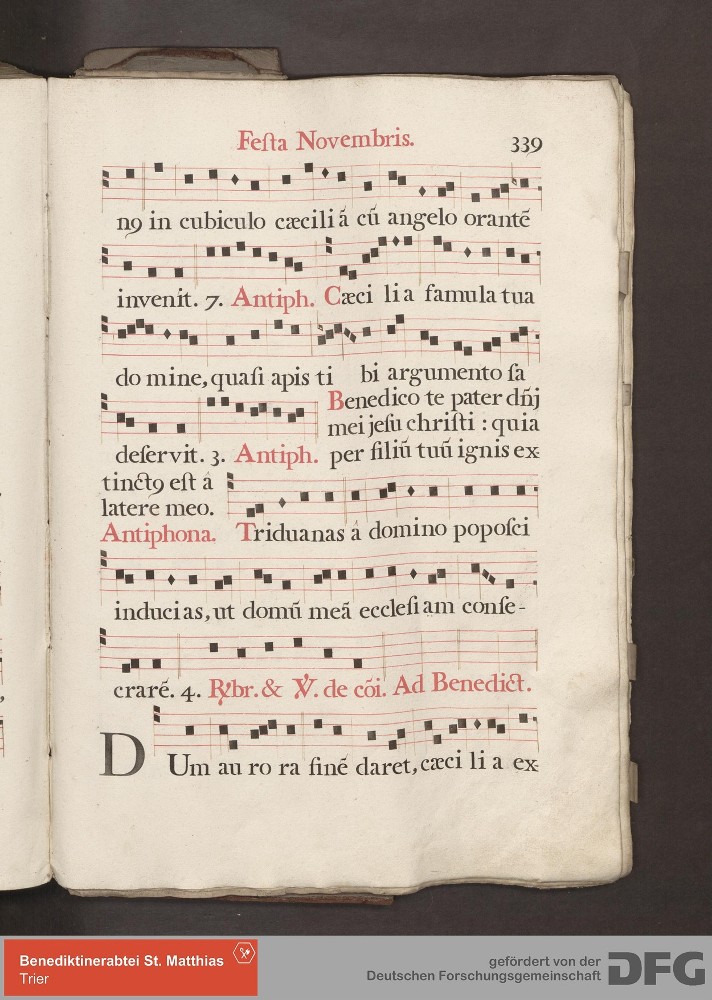 Feſta Novembris.
339
n9 in cubiculo cæciliá cũ angelo orantẽ
invenit. 7. Antiph. Cæci li a famula tua
do mine, quaſi apis ti bi argumento ſa
Benedico te pater dñj
mei jeſu chriſti : quia
deſervit. 3. Antiph. per filiũ tuũ ignis ex-
tinct9 eſt á
latere meo.
Antiphona. Triduanas á domino popoſci
inducias, ut domũ meã eccleſiam conſe-
crarẽ. 4. R̷br. & V̷. de cõi. Ad Benedict.
DUm au ro ra finẽ daret, cæci li a ex-
Benediktinerabtei St. Matthias
Trier
gefördert von der
Deutschen Forschungsgemeinschaft
DFG